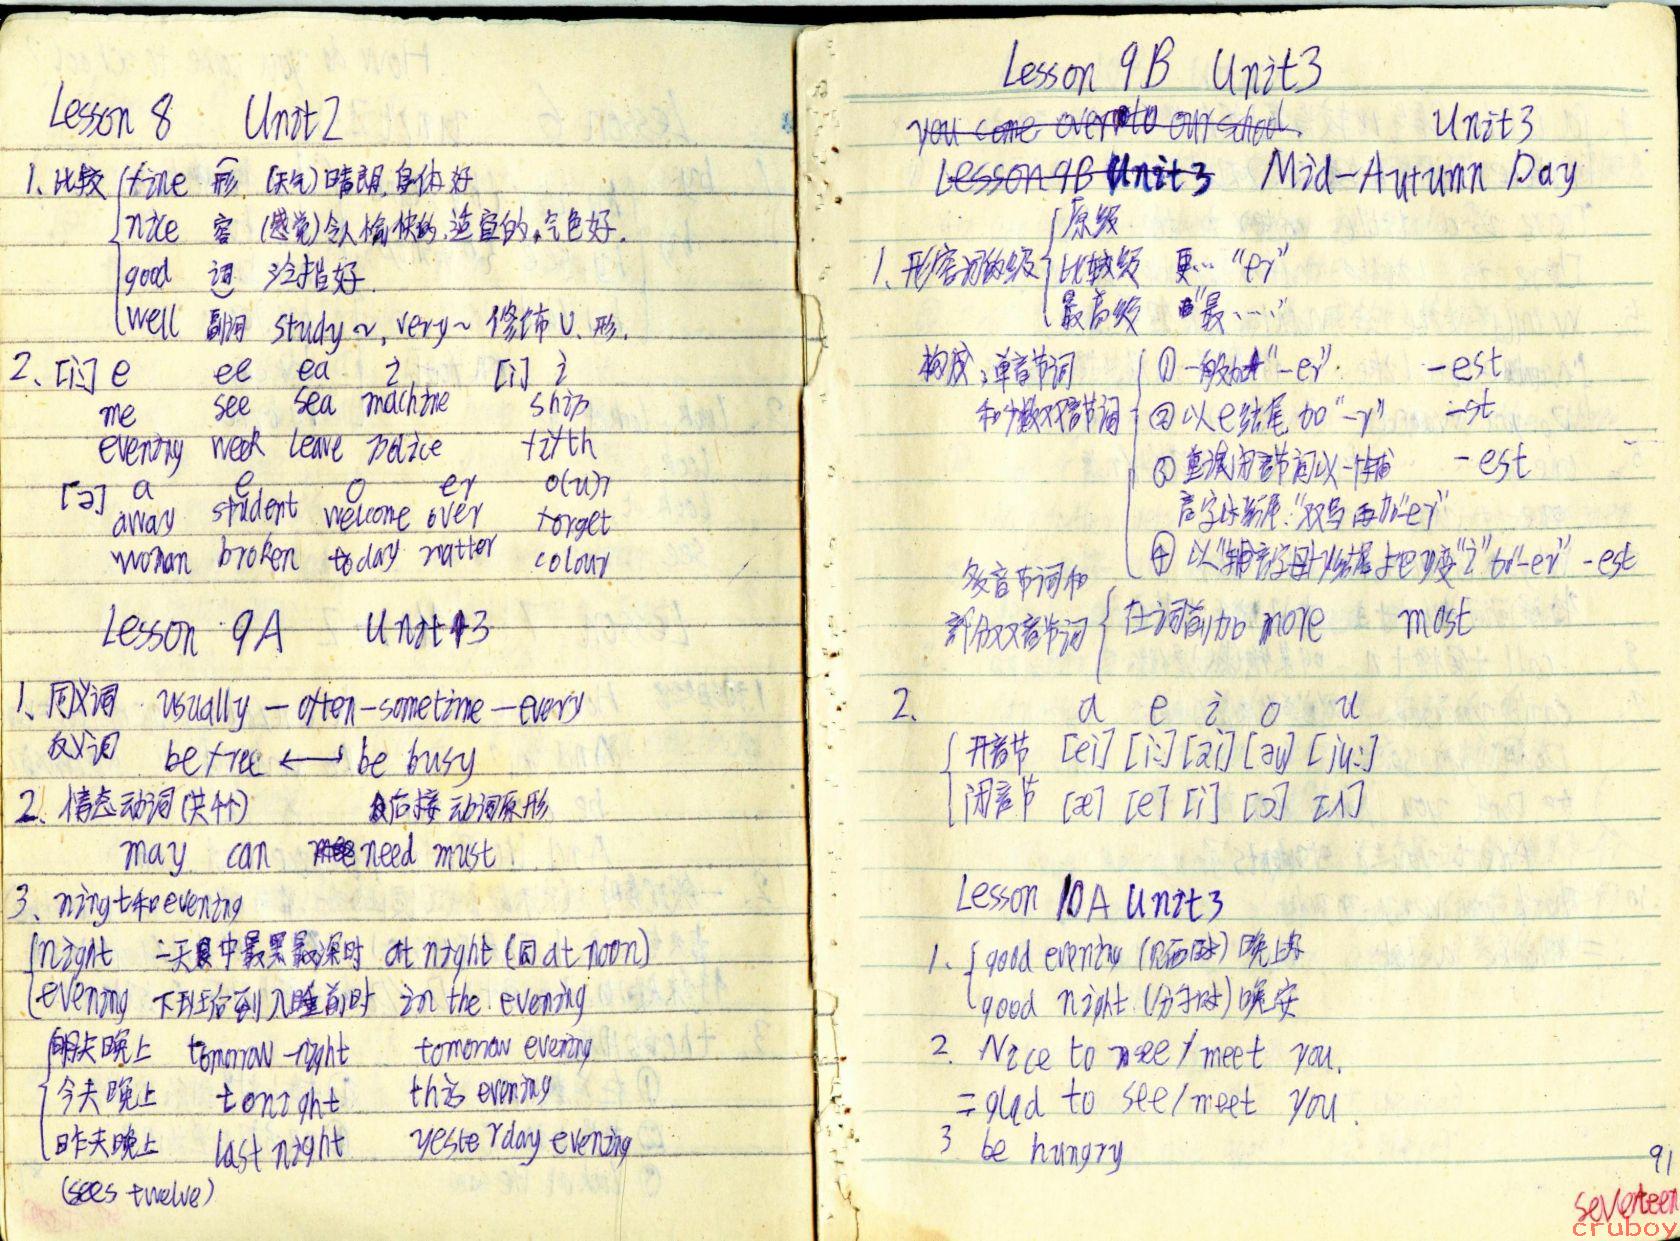 Lesson 8 Unit2
1、比较 fine 形 (天气)晴朗,身体好
nice 容 (感觉)令人愉快的,适宜的,气色好.
good 词 冷指好.
well 副词 study~, very~ 修饰V、形.
2、[i:] e ee ea i [i] i
me see sea machine ship
evening week leave police fifth
[ə] a e o er o(u)r
away student welcome over forget
woman broken today matter colour
Lesson 9A Unit 3
1、同义词 usually — often — sometime — every
反义词 be free ⟷ be busy
2、情态动词(共4个) 后接动词原形
may can need must
3、night和evening
night 一天中最黑最深时 at night (同at noon)
evening 下班后到入睡前时 in the evening
明天晚上 tomorrow night tomorrow evening
今天晚上 tonight this evening
昨天晚上 last night yesterday evening
(sees twelve)
Lesson 9B Unit3
you come over to our school. Unit3
Lesson 9B Unit3 Mid-Autumn Day
原级
1、形容词的级 比较级 更… "er"
最高级 "最……"
构成:单音节词 ① 一般加"-er". -est
和少数双音节词 ② 以e结尾加"-r" -st
③ 重读闭音节词以一个辅 -est
音字母结尾:"双写再加"-er"
④ 以"辅音字母+y结尾 把y变"i"加"-er" -est
多音节词和
部分双音节词 在词前加 more most
2. a e i o u
开音节 [ei] [i:] [ai] [əu] [ju:]
闭音节 [æ] [e] [i] [ɔ] [ʌ]
Lesson 10A Unit3
1. good evening (见面时) 晚上好
good night. (分手时) 晚安
2. Nice to see/meet you.
=glad to see/meet you.
3 be hungry
91
seventeen
cruboy